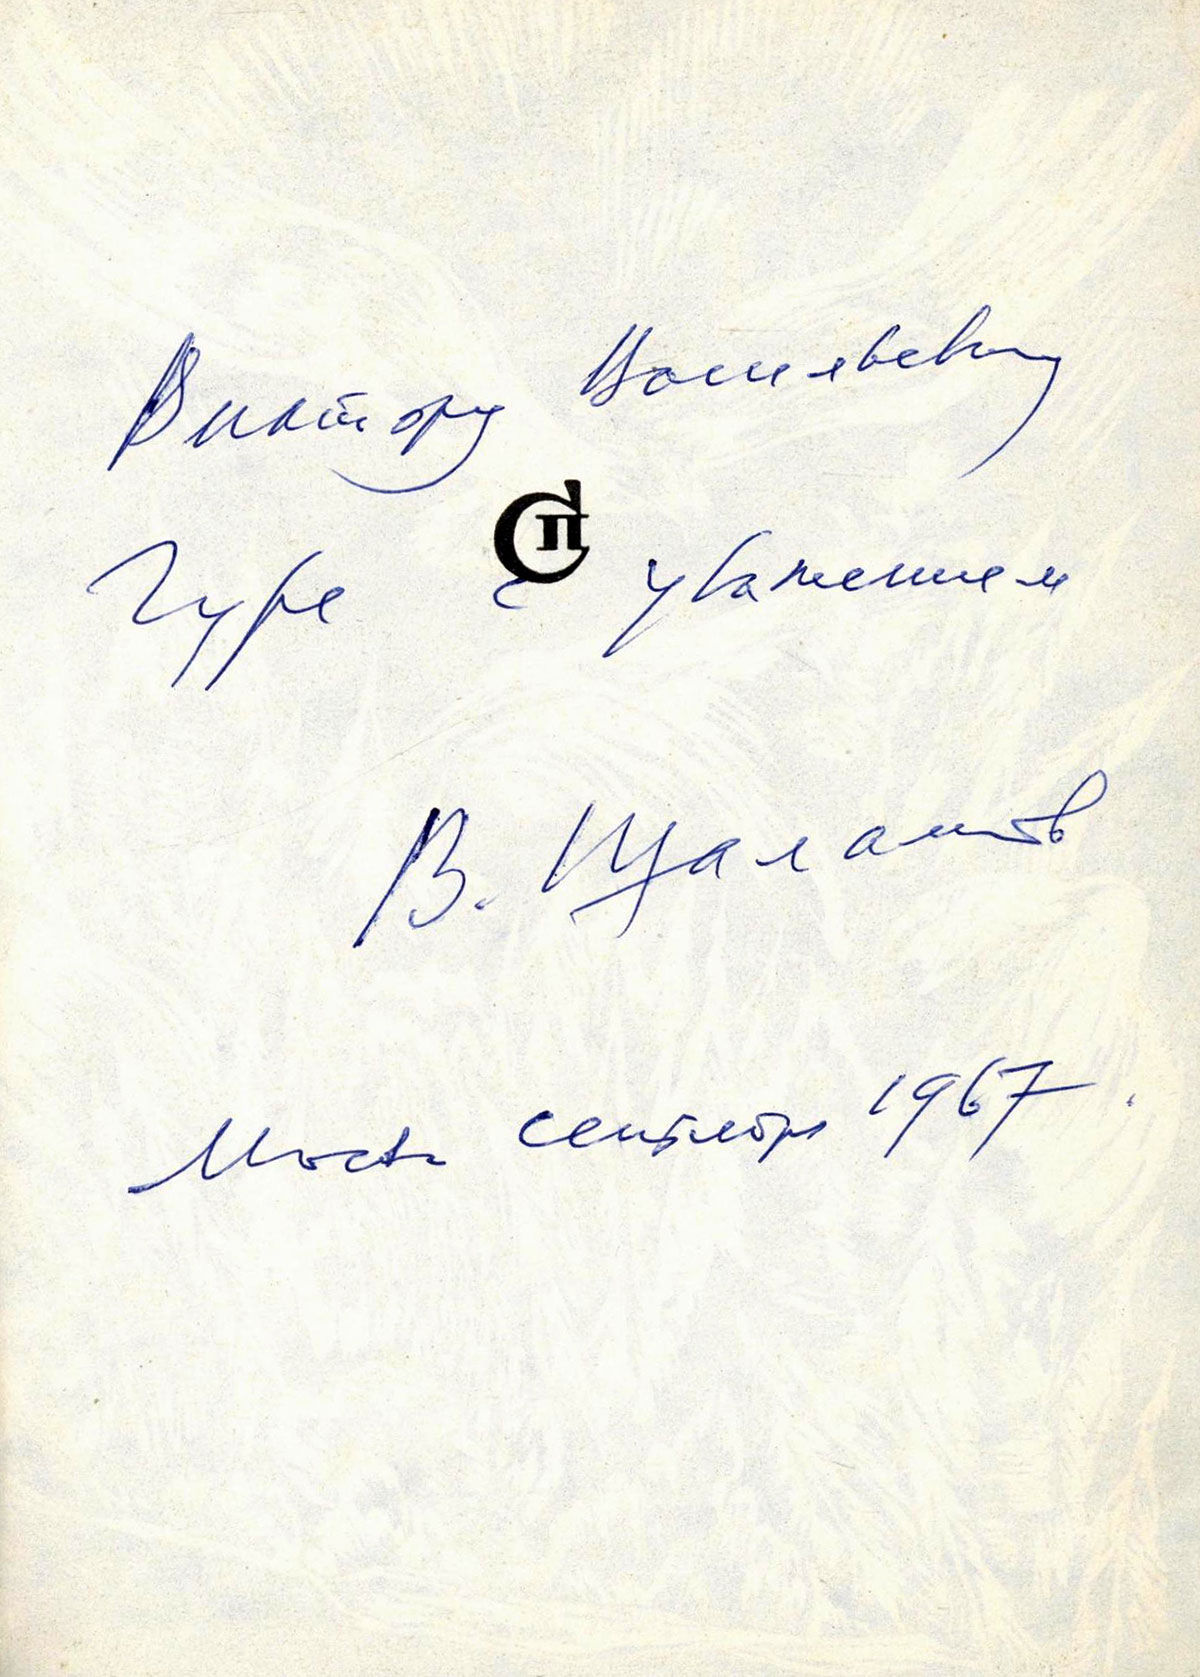 Виктору Васильевичу
СП
Гуре с уважением
В. Шаламов
Москва сентябрь 1967.